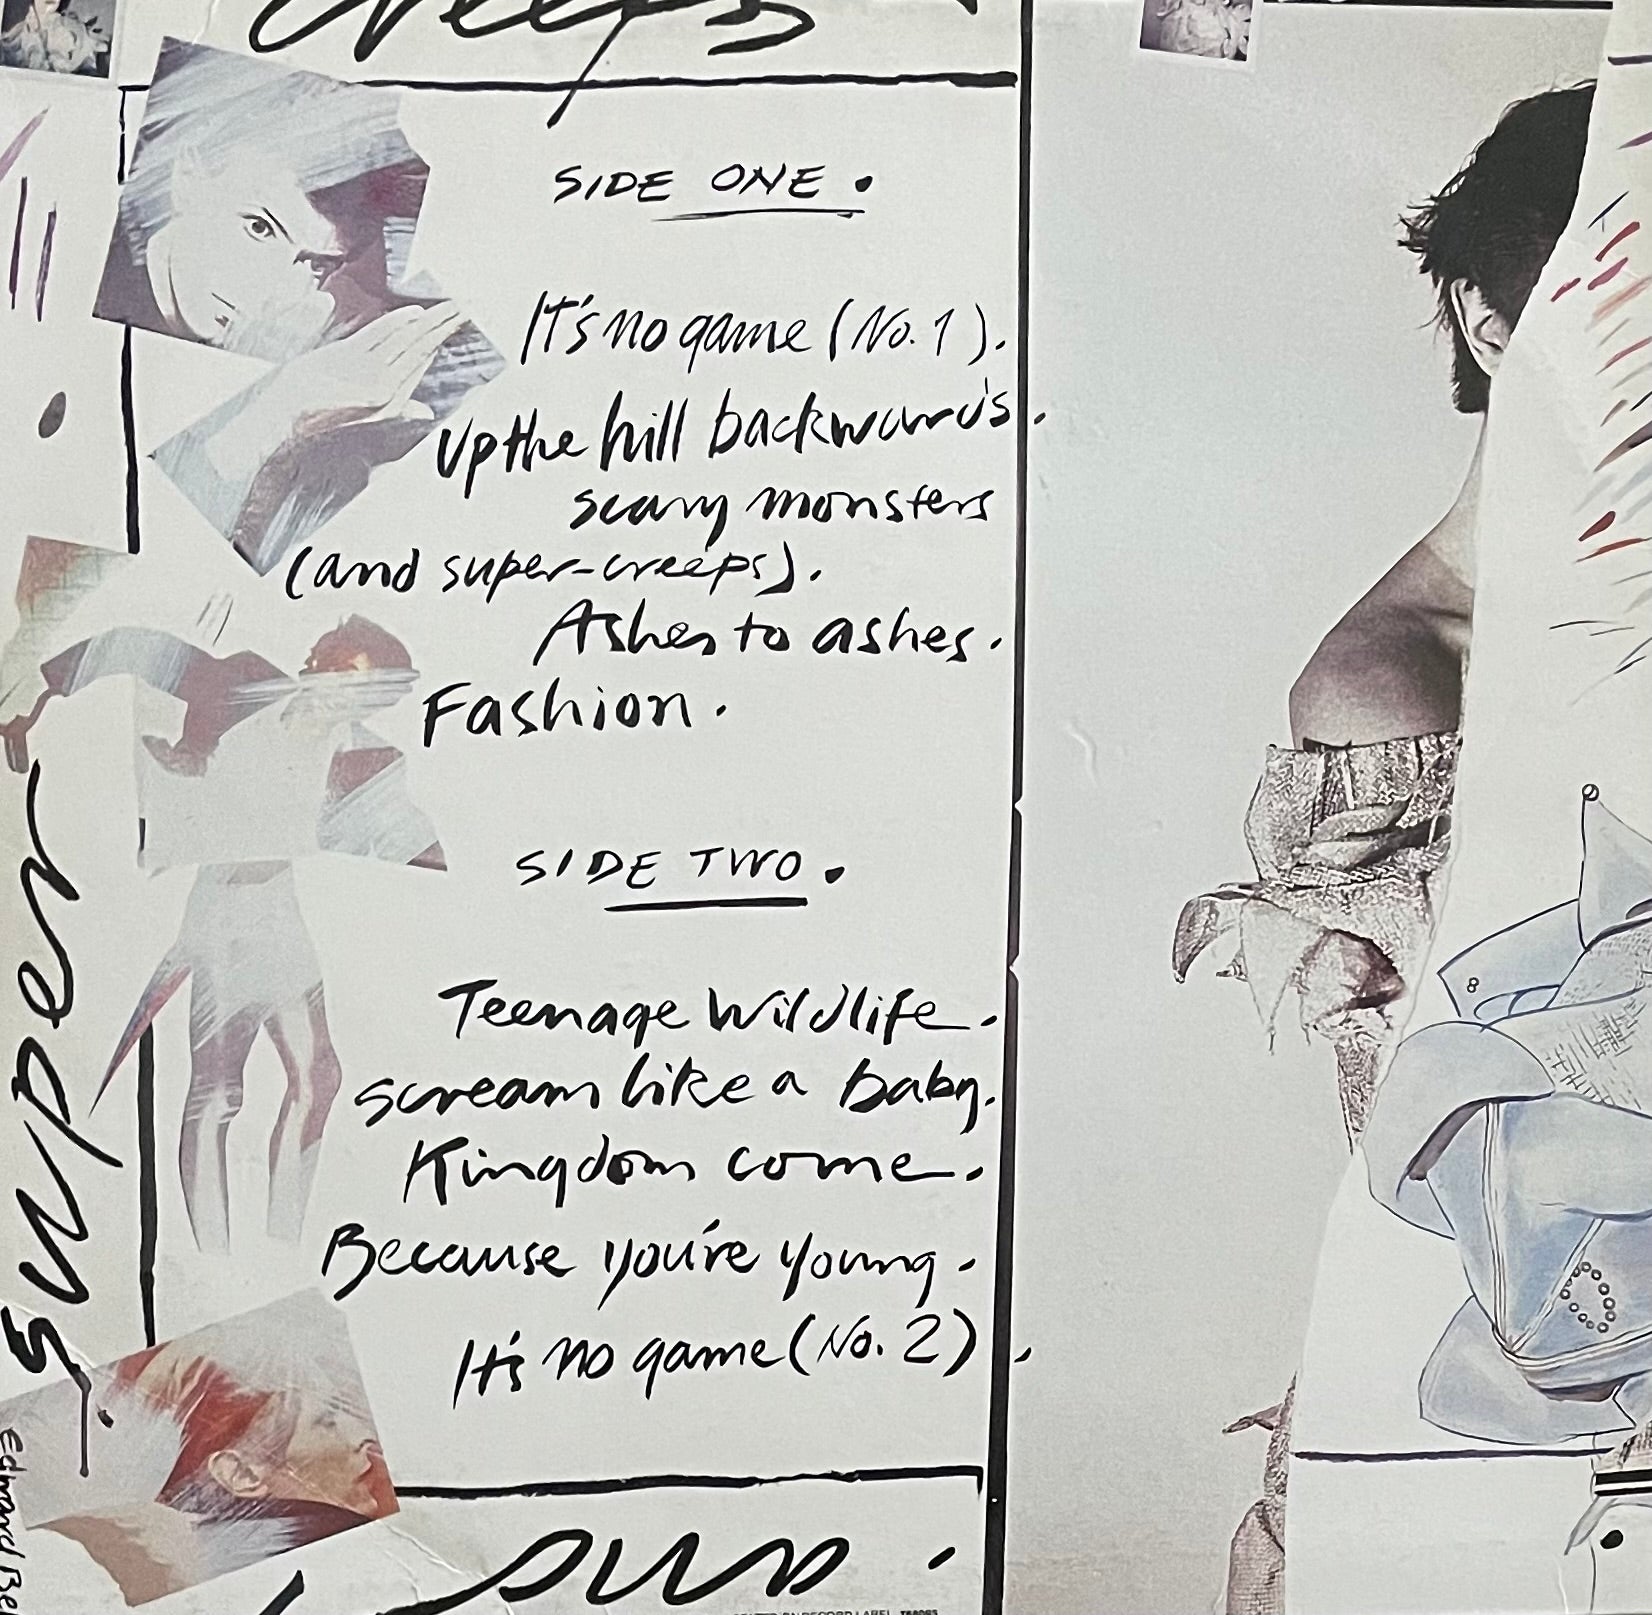 creeps
SIDE ONE.
It's no game (No. 1).
Up the hill backwards.
scary monsters
(and super-creeps).
Ashes to ashes.
Fashion.
SIDE TWO.
Teenage Wildlife.
scream like a baby.
Kingdom come.
Because you're young.
It's no game (No. 2).
super
Edward Bel
RECORD LABEL